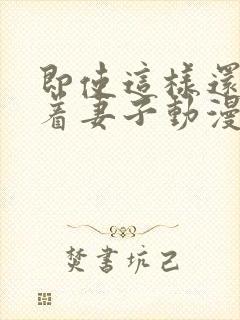 即使這樣還
着妻子動漫
焚書坑己